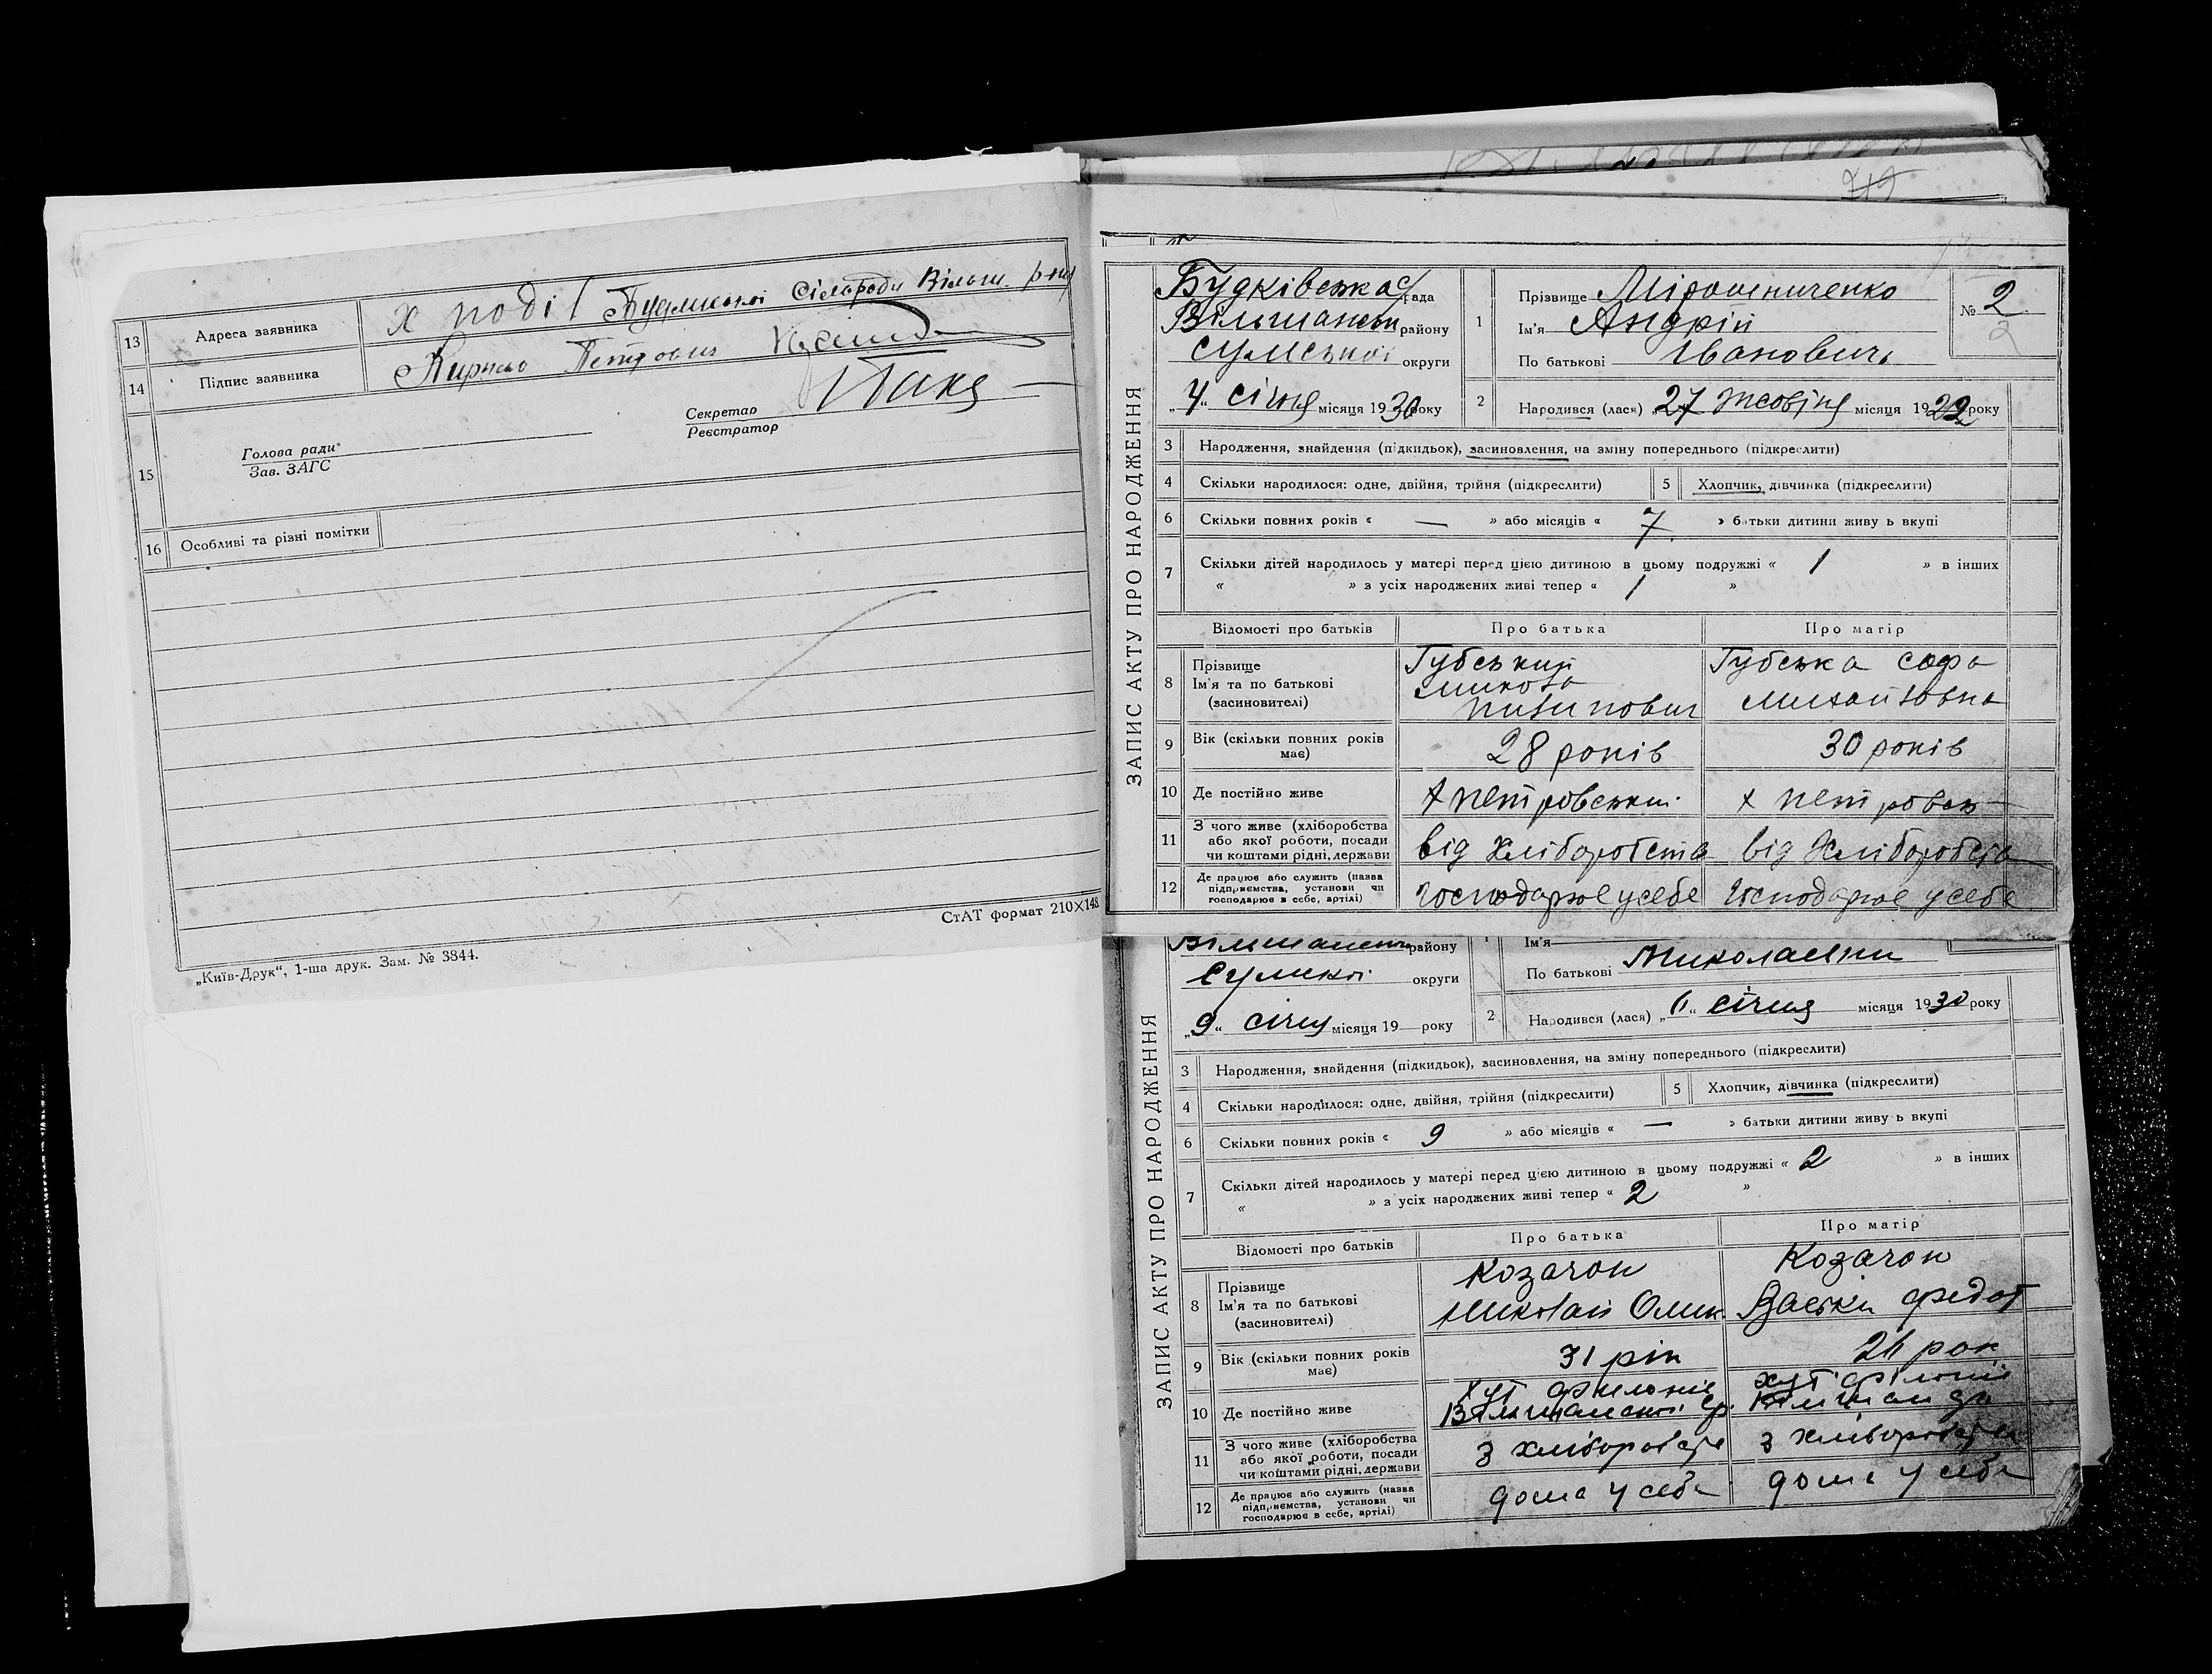 13 Адреса заявника х поділ Сільради Вільш. р-ну
14 Підпис заявника Кирило Петрович
15 Голова ради
Зав. ЗАГС
Секретар
Реєстратор
16 Особливі та різні помітки
СтАТ формат 210×148
„Київ-Друк“, 1-ша друк. Зам. № 3844.
ЗАПИС АКТУ ПРО НАРОДЖЕННЯ
Будківська с/рада
Вільшанськ району
сумської округи
„4“ січня місяця 1930 року
1 Прізвище Мірошниченко
Ім'я Андрій
По батькові Іванович
№ 2
2
2 Народився (лася) 27 жовтня місяця 1922 року
3 Народження, знайдення (підкидьок), засиновлення, на зміну попереднього (підкреслити)
4 Скільки народилося: одне, двійня, трійня (підкреслити)
5 Хлопчик, дівчинка (підкреслити)
6 Скільки повних років « — » або місяців « 7 » батьки дитини живу ь вкупі
7 Скільки дітей народилось у матері перед цією дитиною в цьому подружжі « 1 » в інших
« » з усіх народжених живі тепер « 1 »
Відомості про батьків Про батька Про матір
8 Прізвище
Ім'я та по батькові
(засиновителі)
Губський
Микола
Пилипович
Губська Софа
Михайловна
9 Вік (скільки повних років
має)
28 років 30 років
10 Де постійно живе х петровський х петровськ
11 З чого живе (хліборобства
або якої роботи, посади
чи коштами рідні, держави
від хліборобства від хліборобства
12 Де працює або служить (назва
підприємства, установи чи
господарює в себе, артілі)
господарює у себе господарює у себе
ЗАПИС АКТУ ПРО НАРОДЖЕННЯ
району
округи
„9“ січня місяця 19— року
1 Ім'я
По батькові Миколаевни
2 Народився (лася) січня місяця 1930 року
3 Народження, знайдення (підкидьок), засиновлення, на зміну попереднього (підкреслити)
4 Скільки народилося: одне, двійня, трійня (підкреслити)
5 Хлопчик, дівчинка (підкреслити)
6 Скільки повних років « 9 » або місяців « — » батьки дитини живу ь вкупі
7 Скільки дітей народилось у матері перед цією дитиною в цьому подружжі « 2 » в інших
« » з усіх народжених живі тепер « 2 »
Відомості про батьків Про батька Про матір
8 Прізвище
Ім'я та по батькові
(засиновителі)
Козачок
Николай
Козачок
Федот
9 Вік (скільки повних років
має)
31 рік рок
10 Де постійно живе хут хут
11 З чого живе (хліборобства
або якої роботи, посади
чи коштами рідні, держави
з хліборобств з хліборобств
12 Де працює або служить (назва
підприємства, установи чи
господарює в себе, артілі)
дома у себе дома у себе